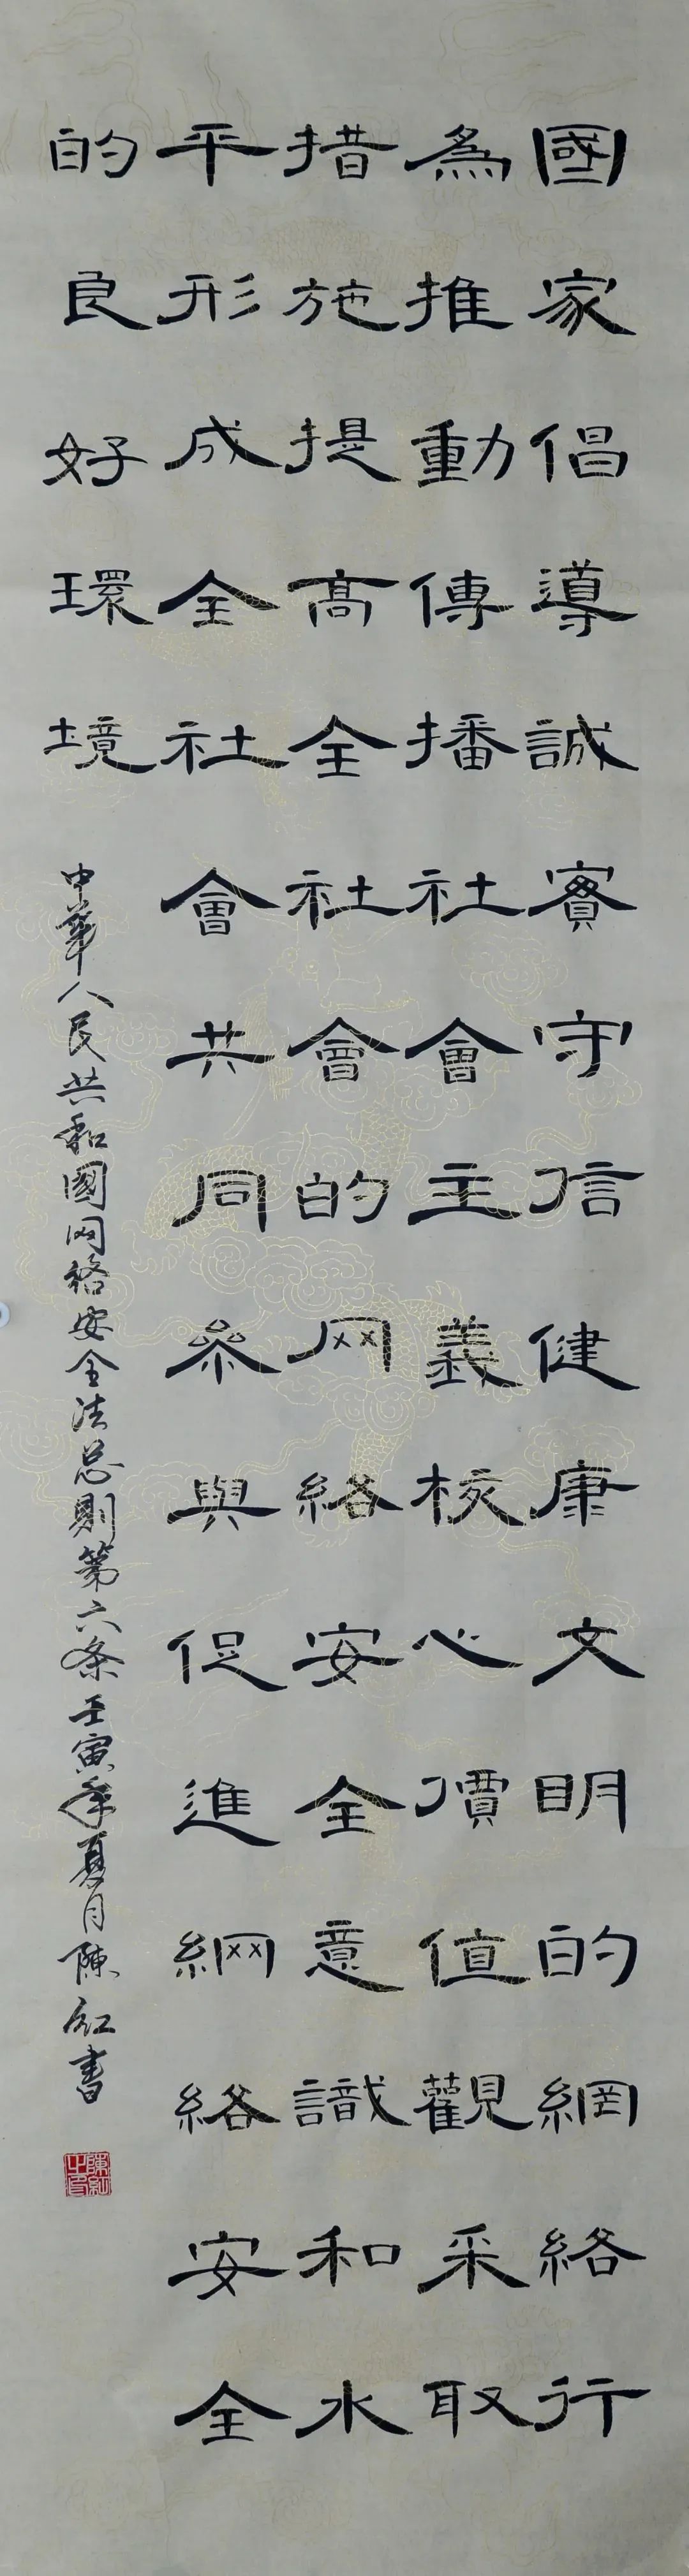 國家倡導誠實守信健康文明的網絡行
為推動傳播社會主義核心價值觀采取
措施提高全社會的网絡安全意識和水
平形成全社會共同參與促進網絡安全
的良好環境
中華人民共和國网络安全法总則第六条壬寅年夏月陳紅書
陳紅之印